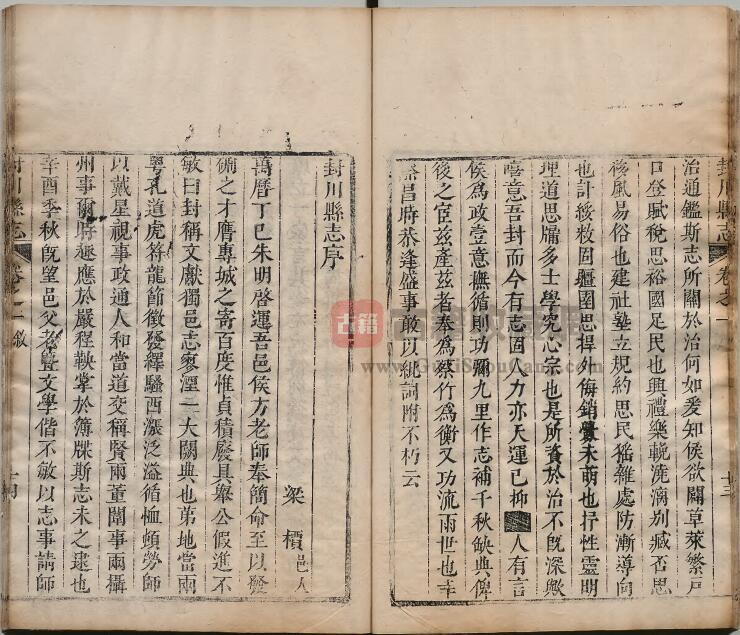 封川縣志 卷之一 十三
治通鑑斯志所關於治何如爰知侯欲闢草萊繁戶
口登賦稅思裕國足民也興禮樂軫澆漓別臧否思
移風易俗也建社塾立規約思民猺雜處防漸導向
也計綏救固疆圉思捍外侮銷釁未萌也抒性靈明
理道思牖多士學究心宗也是所資於治不旣深歟
嘻意吾封而今有志固人力亦天運已抑 人有言
侯爲政壹意撫循則功彌九里作志補千秋缺典俾
後之宦茲產茲者奉爲蔡竹爲衡又功流兩世也幸
際昌時恭逢盛事敢以紕詞附不朽云
封川縣志序
梁 檟 邑人
萬曆丁巳朱明啓運吾邑侯方老師奉簡命至以發
硎之才膺專城之寄百度惟貞積廢具舉公假進不
敏曰封稱文獻獨邑志寥湮二大闕典也第地當兩
粵孔道虎符龍節徵發繹騷酉漲泛溢循恤頻勞師
以戴星視事政通人和當道交稱賢兩董闈事兩攝
州事爾時趣應於嚴程鞅掌於簿牒斯志未之逮也
辛酉季秋旣望邑父老曁文學偕不敏以志事請師
封川縣志 卷之一 敘 十四
古籍
www.GujiShouLang.com